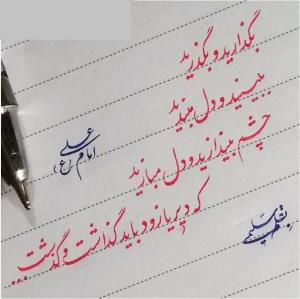 بگذارید و بگذرید
ببینید و دل مبندید
چشم بیندازید و دل مبازید
که دیر یا زود باید گذاشت و گذشت...
امام علی (ع)
بقلم